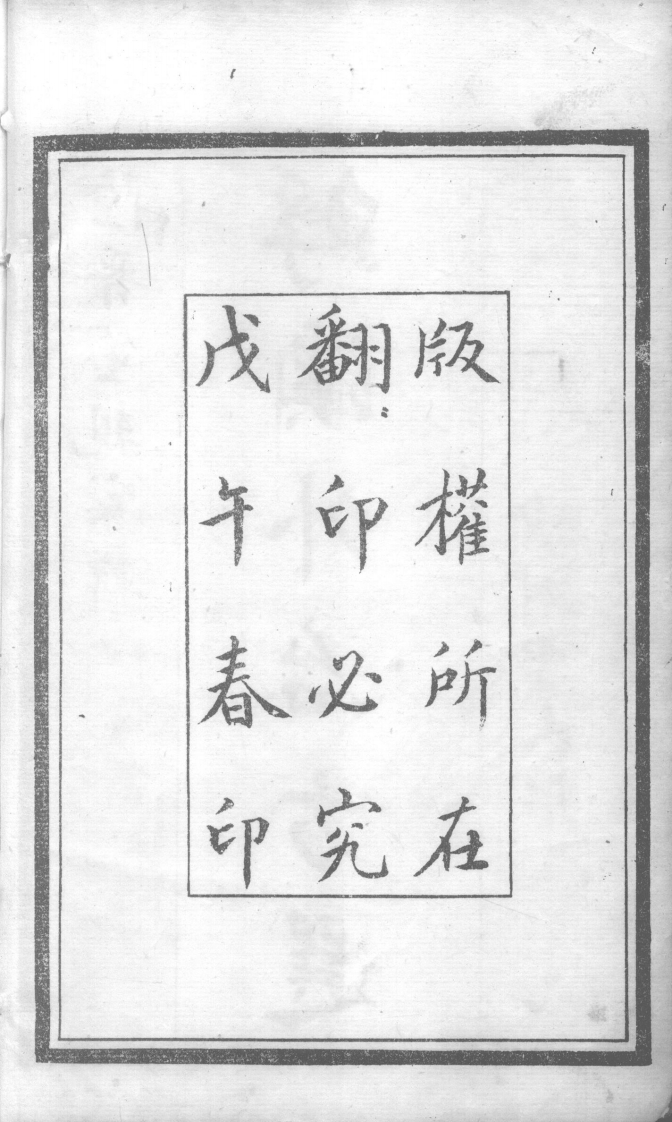 版權所在
翻印必究
戊午春印